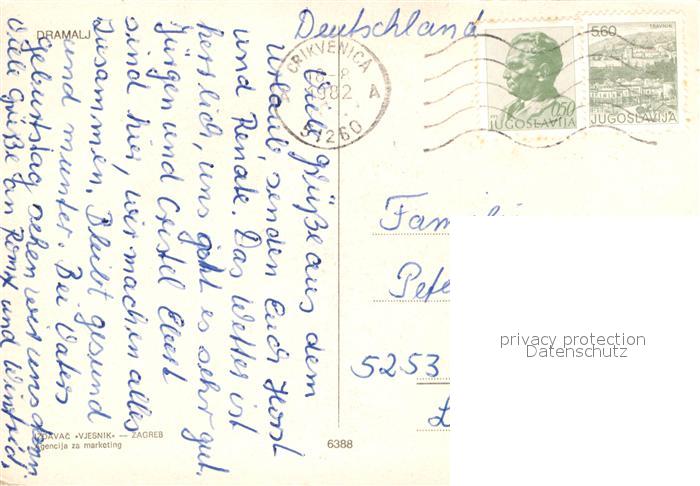 DRAMALJ
Deutschland
CRIKVENICA
1982
A
51260
0,50
JUGOSLAVIJA
5,60
TRAVNIK
JUGOSLAVIJA
Viele Grüße aus dem
Urlaub senden Euch Horst
und Renate. Das Wetter ist
herrlich, uns geht es sehr gut.
Jürgen und Christel Ebert
sind hier, wir machen alles
zusammen. Bleibt gesund
und munter. Bei Vaters
Geburtstag sehen wir uns dann.
Viele Grüße an Romy und Winfried.
Famili
Pete
5253
privacy protection
Datenschutz
IZDAVAČ »VJESNIK« — ZAGREB
agencija za marketing
6388